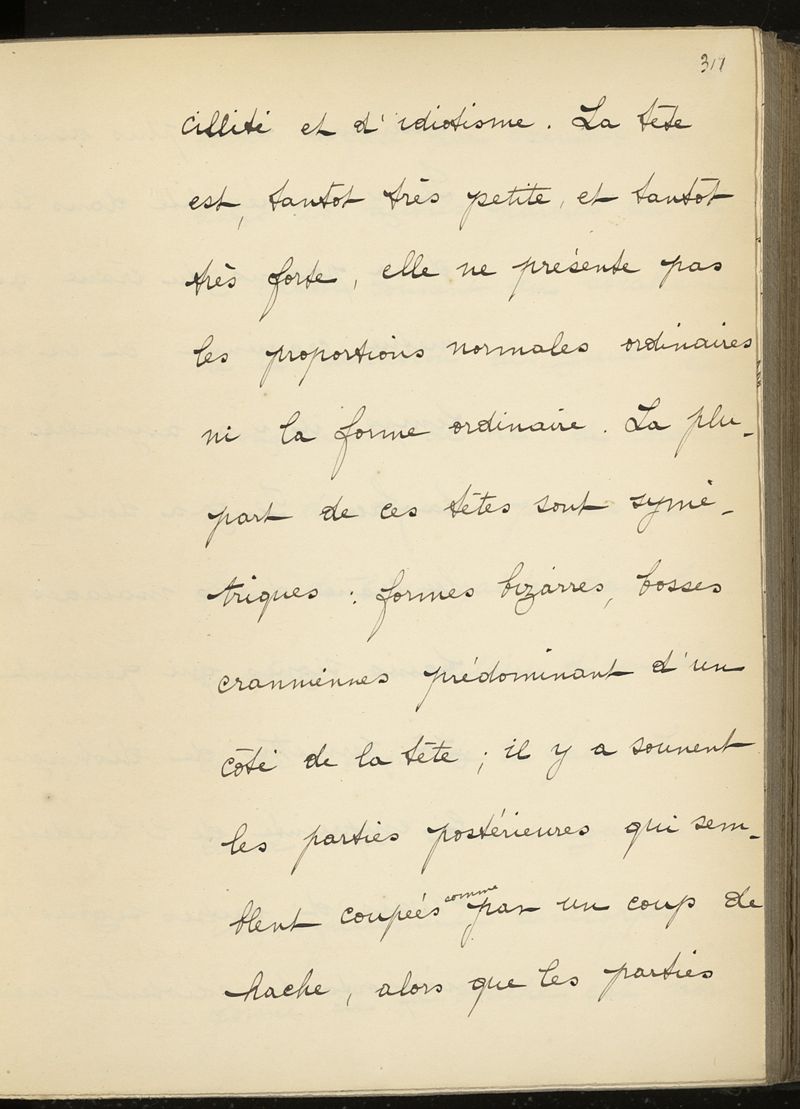 317
cillité et d'idiotisme. La tête
est, tantôt très petite, et tantôt
très forte, elle ne présente pas
les proportions normales ordinaires
ni la forme ordinaire. La plu-
part de ces têtes sont symé-
triques : formes bizarres, bosses
cranniennes prédominant d'un
côté de la tête ; il y a souvent
les parties postérieures qui sem-
blent coupées comme par un coup de
hache, alors que les parties